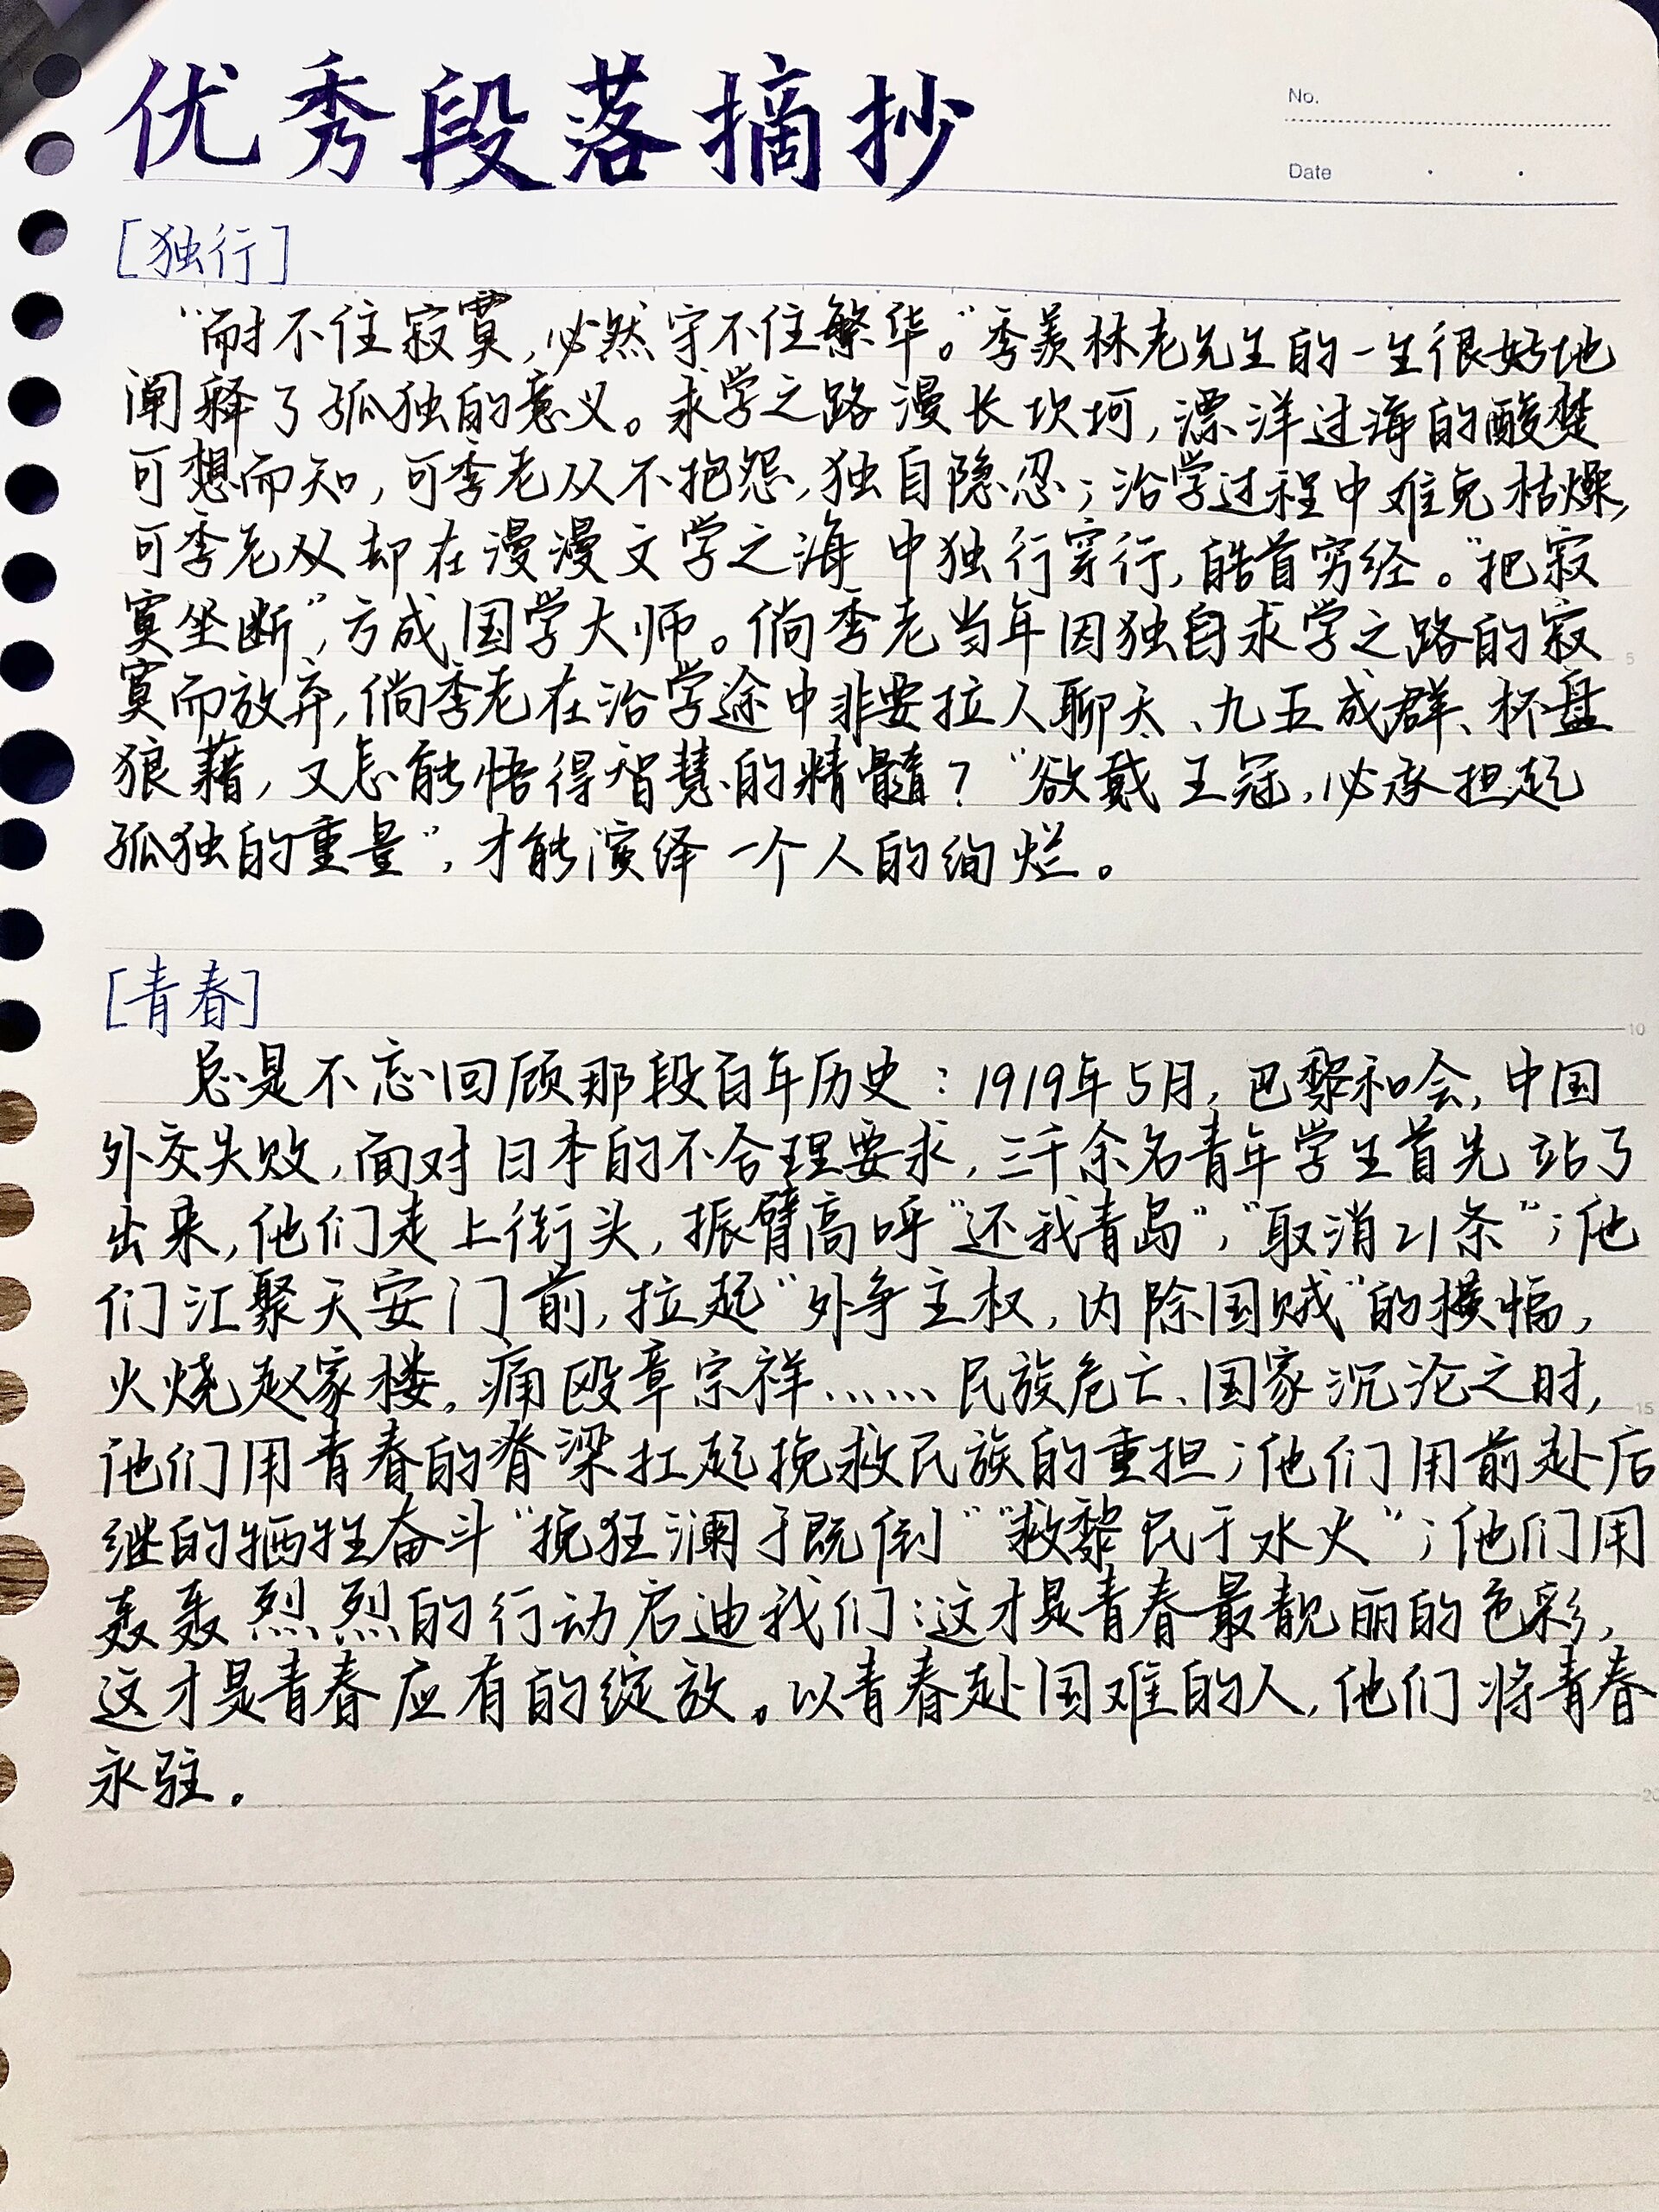 优秀段落摘抄
No.
Date
[独行]
“耐不住寂寞,必然守不住繁华。”季羡林老先生的一生很好地
阐释了孤独的意义。求学之路漫长坎坷,漂洋过海的酸楚
可想而知,可季老从不抱怨,独自隐忍;治学过程中难免枯燥,
可季老从却在漫漫文学之海中独行穿行,皓首穷经。“把寂
寞坐断”,方成国学大师。倘季老当年因独自求学之路的寂
寞而放弃,倘季老在治学途中非要拉人聊天、九五成群、杯盘
狼藉,又怎能悟得智慧的精髓?“欲戴王冠,必承担起
孤独的重量”,才能演绎一个人的绚烂。
5
[青春]
10
总是不忘回顾那段百年历史:1919年5月,巴黎和会,中国
外交失败,面对日本的不合理要求,三千余名青年学生首先站了
出来,他们走上街头,振臂高呼“还我青岛”,“取消21条”;他
们汇聚天安门前,拉起“外争主权,内除国贼”的横幅,
火烧赵家楼,痛殴章宗祥……民族危亡、国家沉沦之时,
15
他们用青春的脊梁扛起挽救民族的重担;他们用前赴后
继的牺牲奋斗“挽狂澜于既倒”“救黎民于水火”;他们用
轰轰烈烈的行动启迪我们:这才是青春最靓丽的色彩,
这才是青春应有的绽放。以青春赴国难的人,他们将青春
永驻。
20